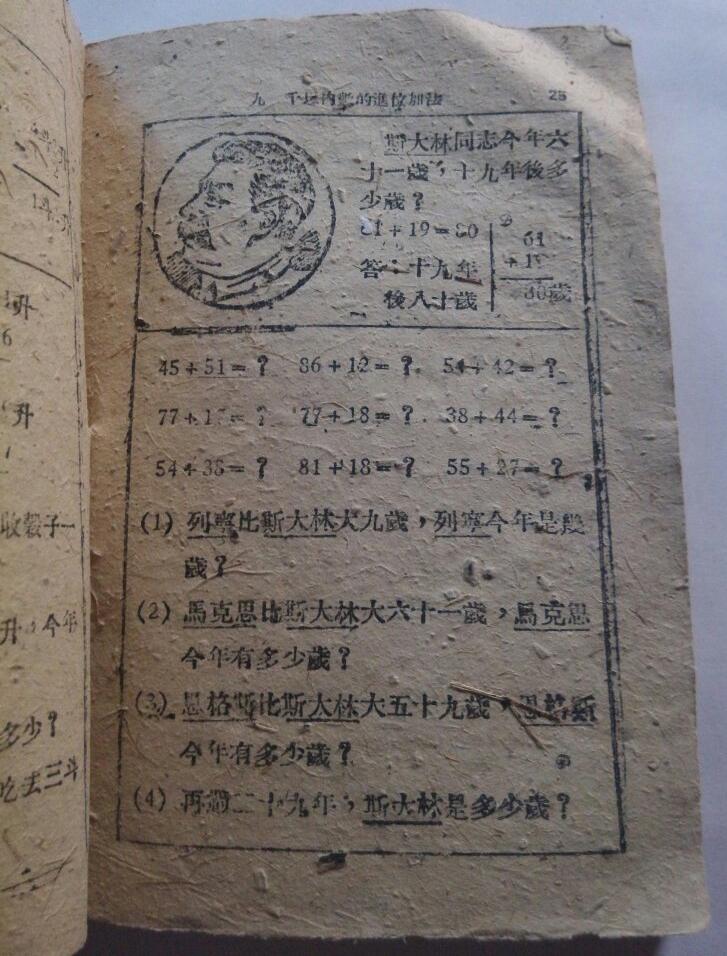 九 千以內數的進位加法 25
斯大林同志今年六
十一歲，十九年後多
少歲？
61＋19＝80
答：十九年
後八十歲
61
＋19
80歲
45＋51＝？ 86＋12＝？ 54＋42＝？
77＋1 ＝？ 77＋18＝？ 38＋44＝？
54＋38＝？ 81＋18＝？ 55＋27＝？
(1) 列寧比斯大林大九歲，列寧今年是幾
歲？
(2) 馬克思比斯大林大六十一歲，馬克思
今年有多少歲？
(3) 恩格斯比斯大林大五十九歲，恩格斯
今年有多少歲？
(4) 再過二十九年，斯大林是多少歲？
升
6
升
收穀子一
升，今年
多少？
吃去三斗